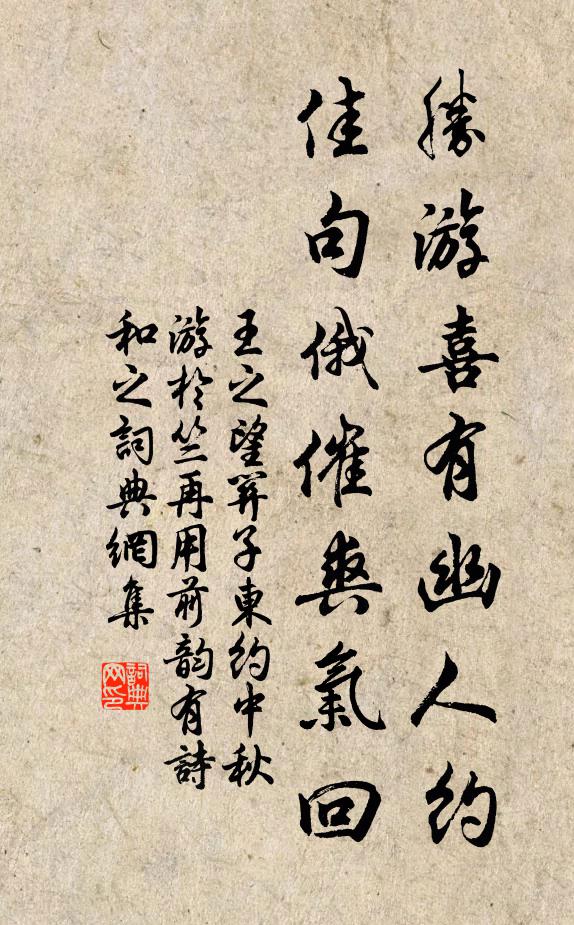 勝游喜有幽人約
佳句俄催爽氣回
王之望羿子東約中秋
游於竺再用前韵有詩
和之詞典網集
詞典网印